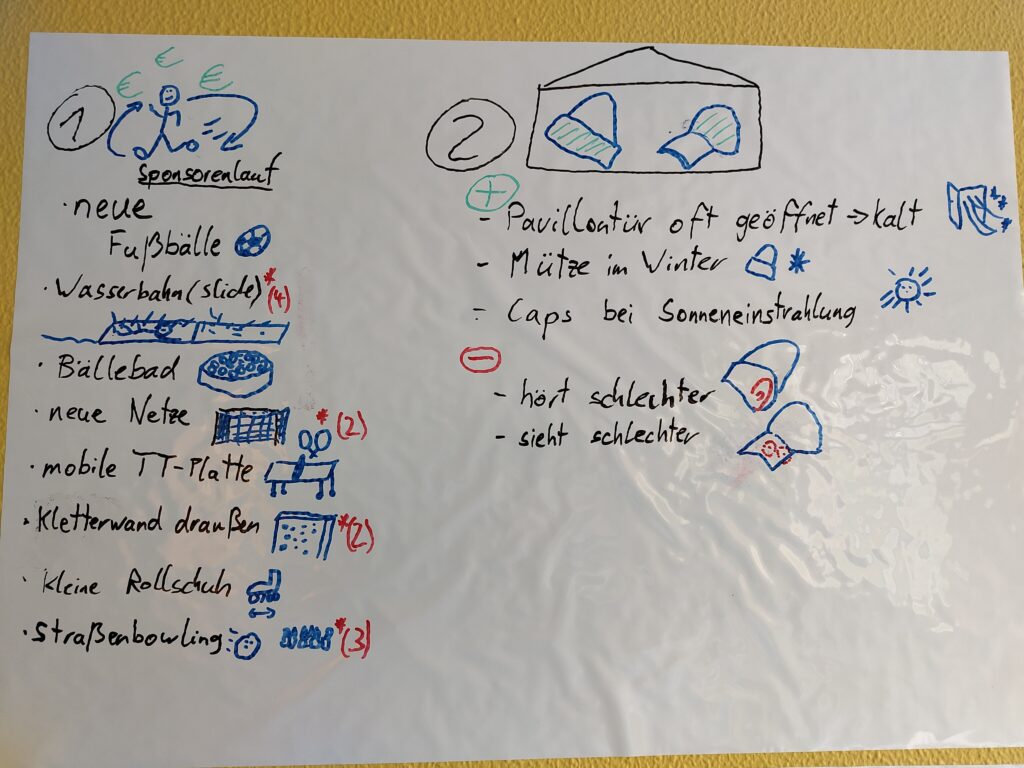 1
€ € €
Sponsorenlauf
· neue
Fußbälle
· Wasserbahn (slide) * (4)
· Bällebad
· neue Netze * (2)
· mobile TT-Platte
· Kletterwand draußen * (2)
· kleine Rollschuh
· Straßenbowling * (3)
2
+
- Pavillontür oft geöffnet → kalt
- Mütze im Winter
- Caps bei Sonneneinstrahlung
-
- hört schlechter
- sieht schlechter